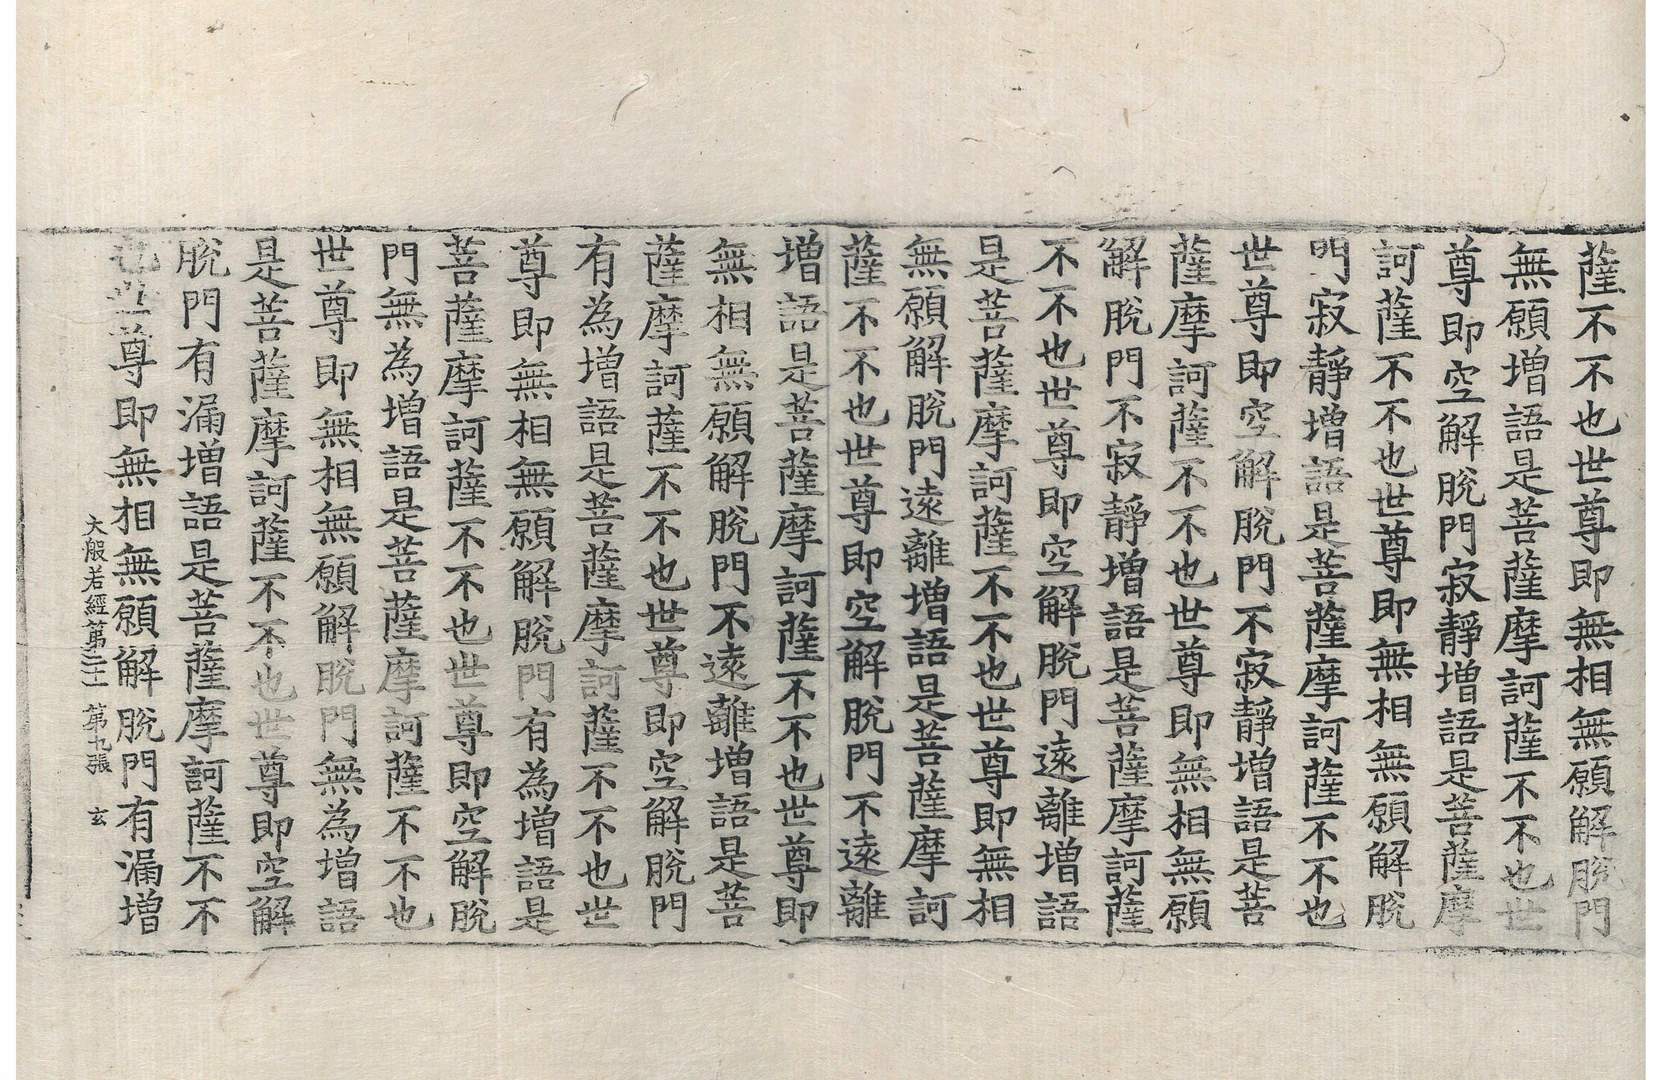 薩不不也世尊即無相無願解脫門
無願增語是菩薩摩訶薩不不也世
尊即空解脫門寂靜增語是菩薩摩
訶薩不不也世尊即無相無願解脫
門寂靜增語是菩薩摩訶薩不不也
世尊即空解脫門不寂靜增語是菩
薩摩訶薩不不也世尊即無相無願
解脫門不寂靜增語是菩薩摩訶薩
不不也世尊即空解脫門遠離增語
是菩薩摩訶薩不不也世尊即無相
無願解脫門遠離增語是菩薩摩訶
薩不不也世尊即空解脫門不遠離
增語是菩薩摩訶薩不不也世尊即
無相無願解脫門不遠離增語是菩
薩摩訶薩不不也世尊即空解脫門
有為增語是菩薩摩訶薩不不也世
尊即無相無願解脫門有為增語是
菩薩摩訶薩不不也世尊即空解脫
門無為增語是菩薩摩訶薩不不也
世尊即無相無願解脫門無為增語
是菩薩摩訶薩不不也世尊即空解
脫門有漏增語是菩薩摩訶薩不不
也世尊即無相無願解脫門有漏增
大般若經第三十一 第九張 玄